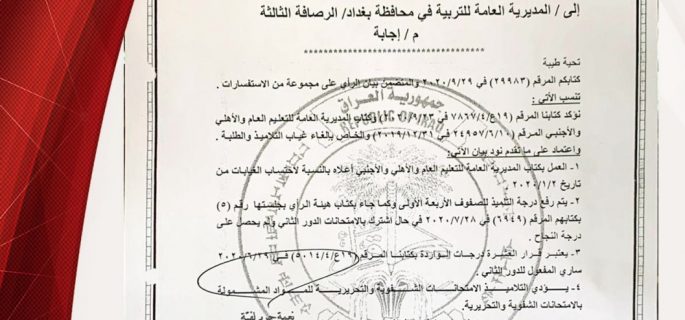 إلى / المديرية العامة للتربية في محافظة بغداد/ الرصافة الثالثة
م / إجابة
*******************************
تحية طيبة
كتابكم المرقم (٢٩٩٨٣) في ٢٠٢٠/٩/٢٩ والمتضمن بيان الرأي على مجموعة من الاستفسارات .
تنسب الآتي :
نؤكد كتابنا المرقم (١٩ع/٧٨٦٧/٤ في ٩/٢٣/) وكتاب المديرية العامة للتعليم العام والأهلي
والأجنبي المرقم (٢٤٩٥٧/٦/١٠ في ٢٠١٩/١٢/٣١) والخاص بإلغاء غياب التلاميذ والطلبة .
واعتماد على ما تقدم نود بيان الآتي:
١- العمل بكتاب المديرية العامة للتعليم العام والأهلي والأجنبي أعلاه بالنسبة لاحتساب الغيابات من
تاريخ ٢٠٢٠/١/٢ .
٢- يتم رفع درجة التلميذ للصفوف الأربعة الأولى وكما جاء بكتاب هيئة الرأي بجلستها رقم (٥)
بكتابهم المرقم (٦٩٤٩) في ٢٠٢٠/٧/٢٨ في حال اشترك بالامتحانات الدور الثاني ولم يحصل على
درجة النجاح .
٣- يعتبر قرار العشرة درجات الواردة بكتابنا المرقم (١٩ع/٥٠١٤/٤) في ٢٠٢٠/٦/٢٩
ساري المفعول للدور الثاني .
٤- يؤدي التلاميذ الامتحانات الشفوية والتحريرية للمواد المشمولة
بالامتحانات الشفوية والتحريرية.
جمهورية العراق
REPUBLIC OF IRAQ